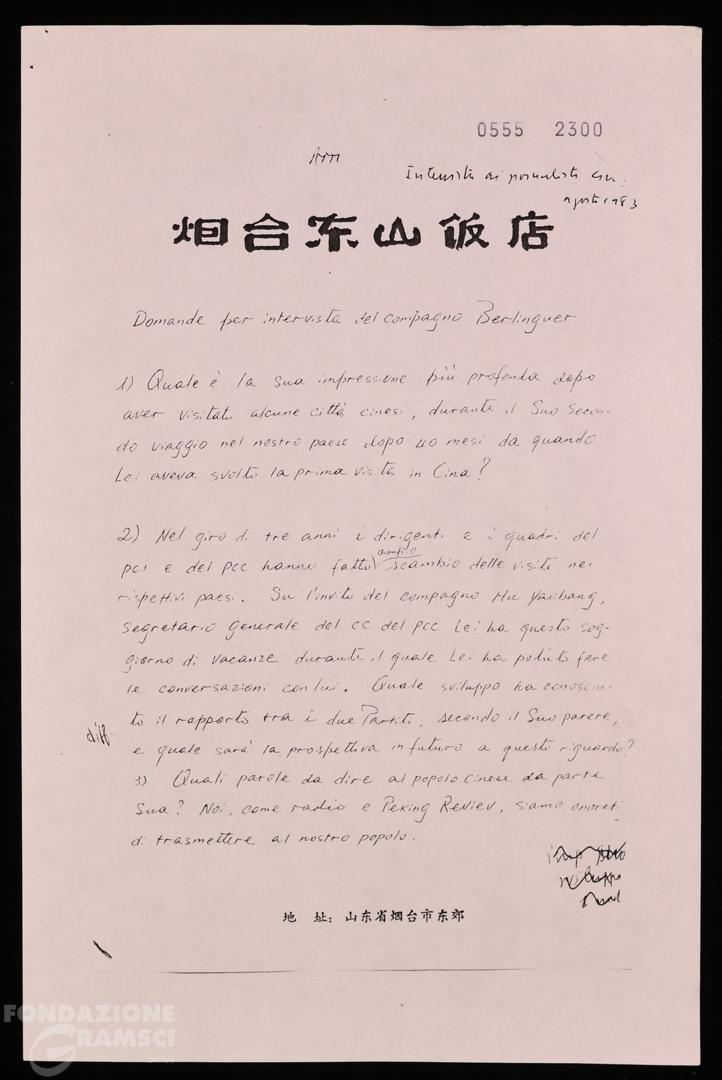 0555 2300
Intervista ai giornalisti
agosto 1983
烟台东山饭店
Domande per intervista del compagno Berlinguer
1) Quale è la sua impressione più profonda dopo
aver visitato alcune città cinesi, durante il Suo secon-
do viaggio nel nostro paese dopo 40 mesi da quando
Lei aveva svolto la prima visita in Cina?
2) Nel giro di tre anni i dirigenti e i quadri del
PCI e del PCC hanno fatto ampio scambio delle visite nei
rispettivi paesi. Su l'invito del compagno Hu Yaobang,
segretario generale del CC del PCC Lei ha questo sog-
giorno di vacanze durante il quale Lei ha potuto fare
le conversazioni con lui. Quale sviluppo ha conosciu-
to il rapporto tra i due Partiti, secondo il Suo parere,
diff.
e quale sarà la prospettiva in futuro a questo riguardo?
3) Quali parole da dire al popolo cinese da parte
Sua? Noi, come radio e Peking Reviev, siamo onorati
di trasmettere al nostro popolo.
地 址: 山东省烟台市东郊
FONDAZIONE
GRAMSCI
onlus